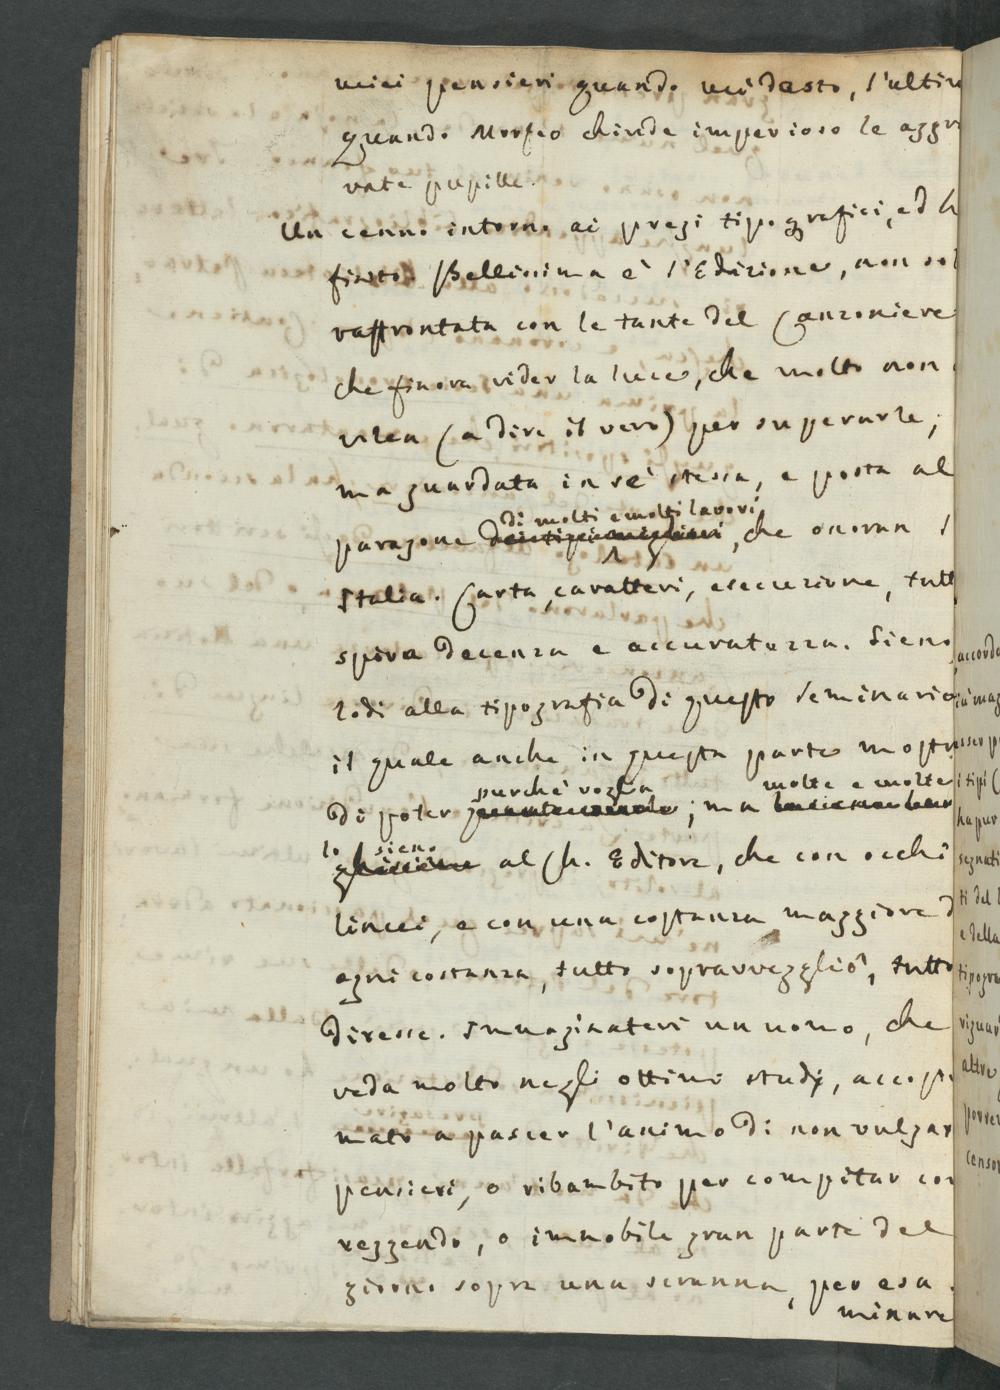 miei pensieri quando mi desto, l'ultim
quando Morfeo chiude imperioso le aggra
vate pupille.
Un cenno intorno ai pregi tipografici, ed h
finito. Bellissima è l'Edizione, non sol
raffrontata con le tante del Canzoniere
che finora vider la luce, che molto non
vilea (a dire il vero) per superarle;
ma guardata in sè stessa, e posta al
di molti e molti lavori
paragone, che onoran l
Italia. Carta, caratteri, esecuzione, tutt
spira decenza e accuratezza. Sieno
lodi alla tipografia di questo Seminario
il quale anche in questa parte mostr
purchè voglia molte e molte
di poter; ma
lo sieno
al Ch. Editore, che con occhi
lincei, e con una costanza maggiore d
ogni costanza, tutto sopravvegliò, tutto
diresse. Immaginatevi un uomo, che
veda molto negli ottimi studj, accostu
mato a pascer l'animo di non vulgar
pensieri, o ribambito per compitar cor
reggendo, o immobile gran parte del
giorno sopra una scranna, per esa
minare
accorda
ti del
e della
altre